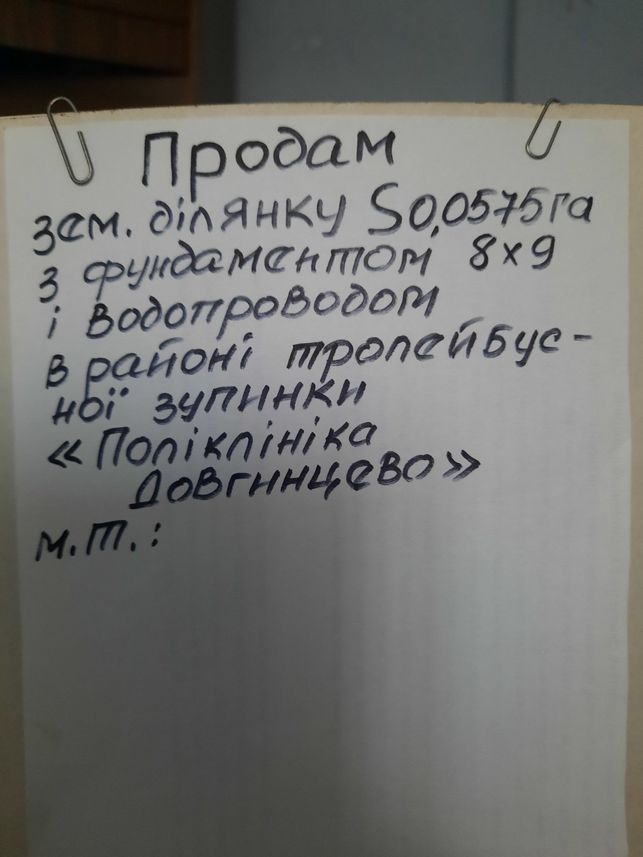 Продам
зем. ділянку S0,0575га
з фундаментом 8х9
і водопроводом
в районі тролейбус-
ної зупинки
«Поліклініка
Довгинцево»
м.т.: